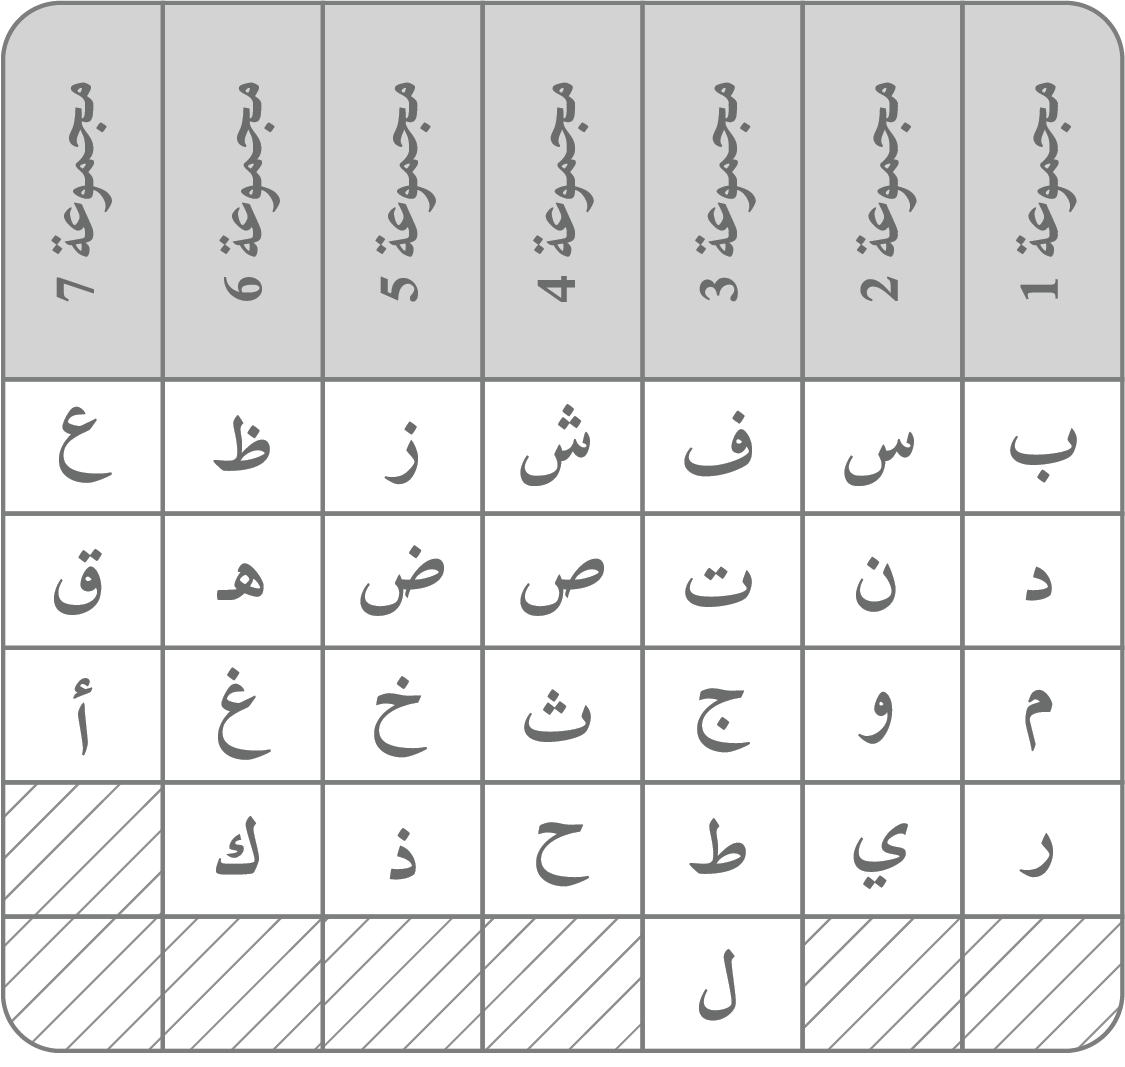 مجموعة 1 مجموعة 2 مجموعة 3 مجموعة 4 مجموعة 5 مجموعة 6 مجموعة 7
ب س ف ش ز ظ ع
د ن ت ص ض هـ ق
م و ج ث خ غ أ
ر ي ط ح ذ ك
ل